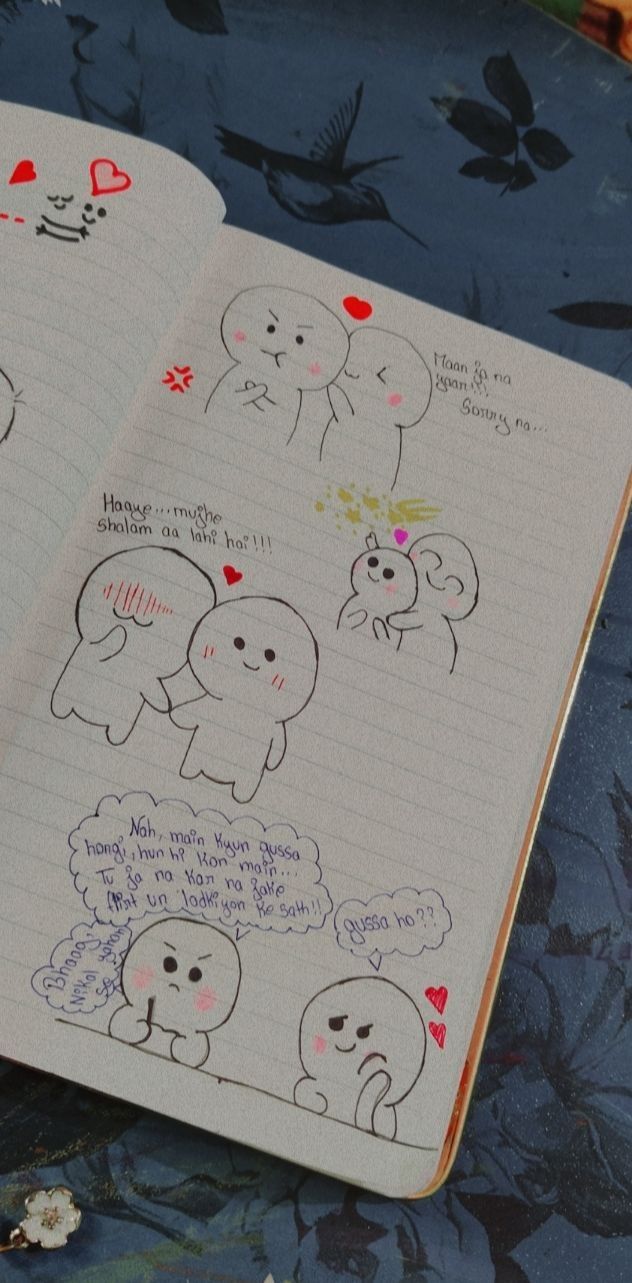 Maan ja na
yaar!!!
Sorry na...
Haaye...mujhe
shalam aa lahi hai!!!
Nah, main kyun gussa
hongi, hun hi kon main...
Tu ja na kar na jake
flirt un ladkiyon ke sath!!
gussa ho??
Bhaag,
Nikal yahan
se